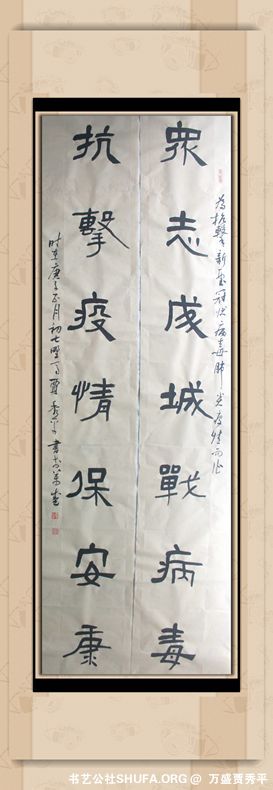 為抗擊新型冠狀病毒肺炎疫情而作
眾志成城戰病毒
抗擊疫情保安康
时在庚子正月初七 賈秀平書於萬盛
书艺公社SHUFA.ORG @ 万盛贾秀平